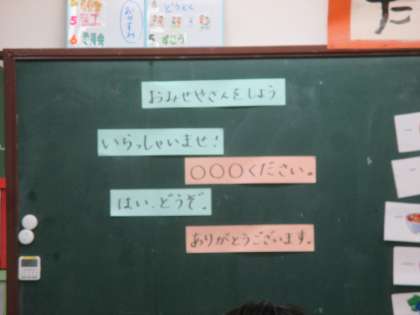 おみせやさんをしよう
いらっしゃいませ!
○○○ください。
はい、どうぞ。
ありがとうございます。
た